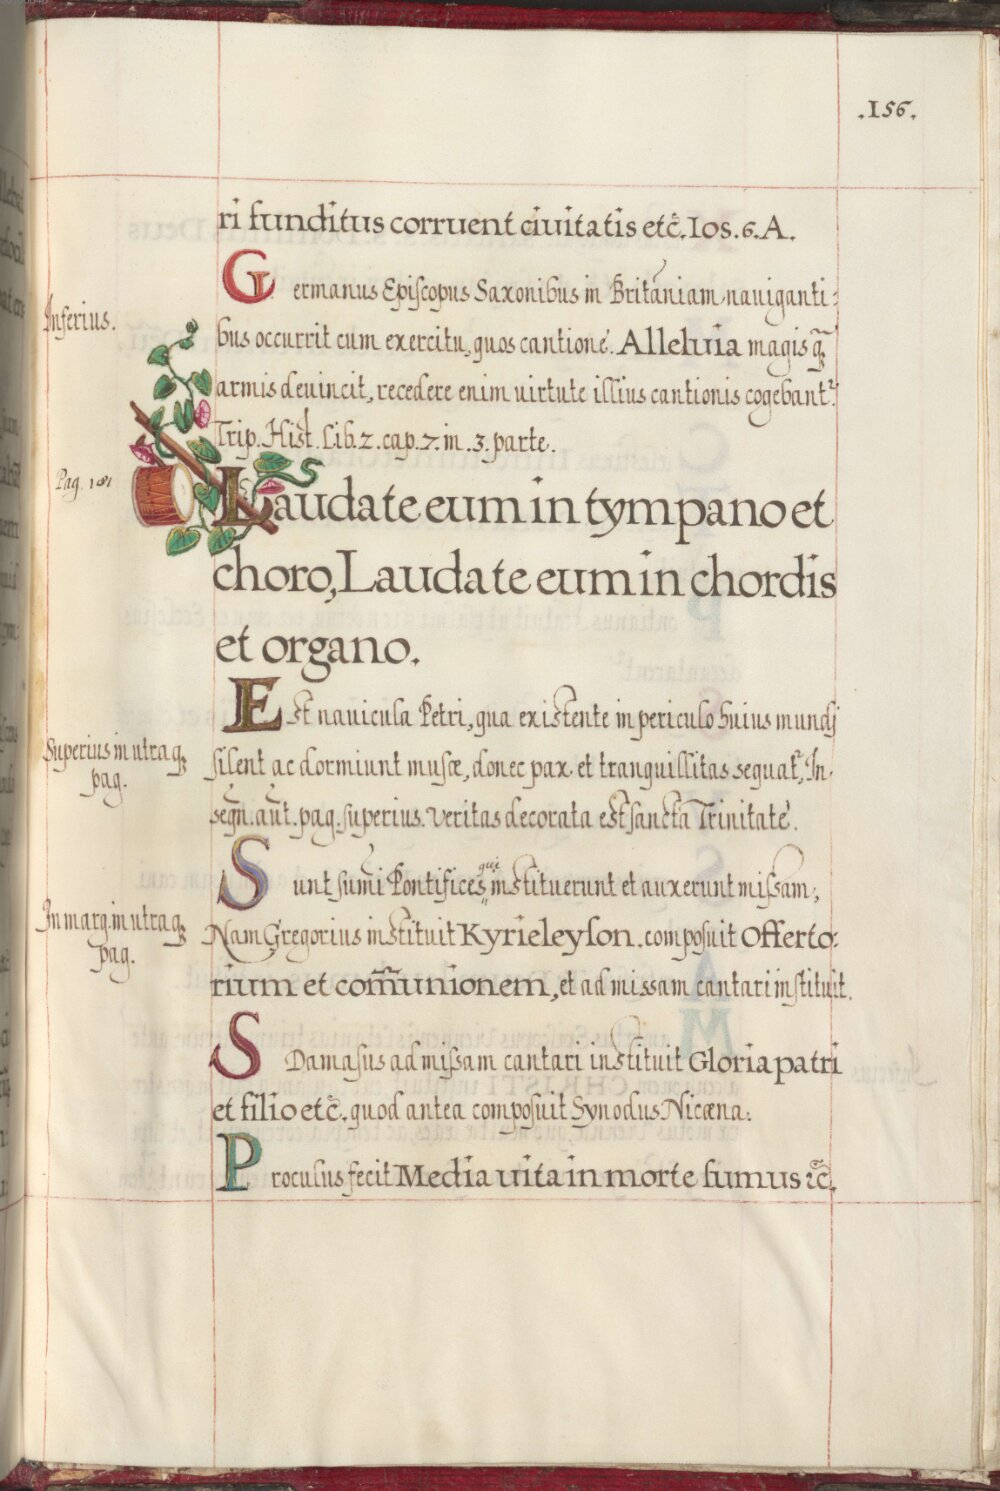 .156.
ri funditus corruent ciuitatis etc̃. Ios. 6. A.
Germanus Episcopus Saxonibus in Britãniam nauiganti:
Inferius.
bus occurrit cum exercitu, quos cantione. Alleluia magis q̃
armis deuincit, recedere enim uirtute illius cantionis cogebant᷑.
Trip. Hist. Lib. 2. cap. 2. in .3. parte.
Pag. 181
Laudate eum in tympano et
choro, Laudate eum in chordis
et organo.
Est nauicula Petri, qua existente in periculo huius mundj
Superius in utraq3
pag.
silent ac dormiunt musæ, donec pax et tranquillitas sequat᷑, In
seqñ. aũt. pag. superius. Veritas decorata est sancta Trinitate.
Sunt sum̃i Pontifices, qui instituerunt et auxerunt missam,
In marg. in utraq3
pag.
Nam Gregorius instituit Kyrieleyson. composuit Offerto:
rium et com̃unionem, et ad missam cantari instituit.
S Damasus ad missam cantari instituit Gloria patri
et filio etc̃. quod antea composuit Synodus Nicæna.
Proculus fecit Media uita in morte sumus ꝛc̃.